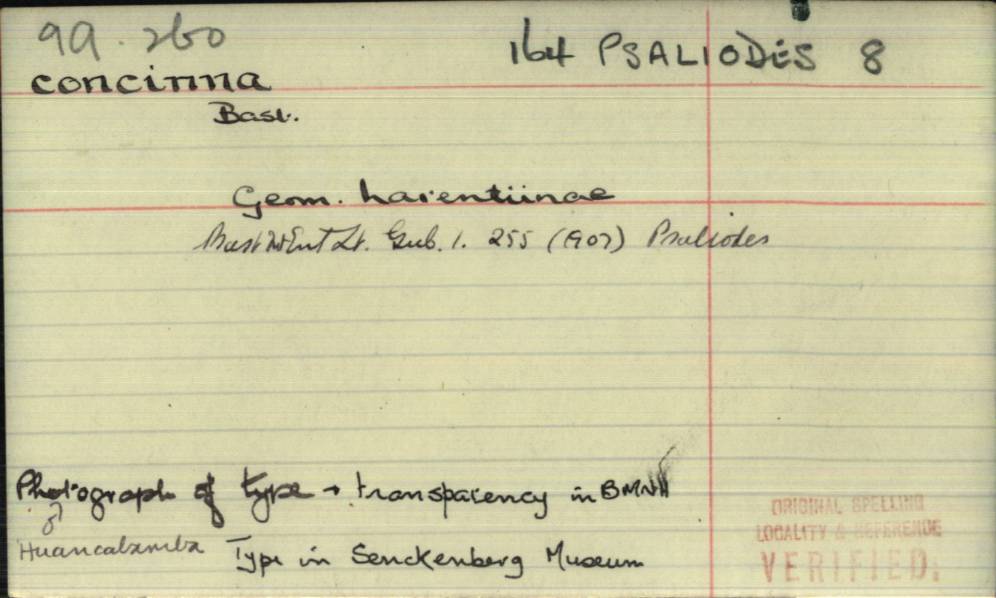 99.260
164 PSALIODES 8
concinna
Bast.
Geom. Larentiinae
Ent. Zt. Gub. 1. 255 (1907) Psaliodes
Photograph of type + transparency in BMNH
♂
Huancabamba Type in Senckenberg Museum
ORIGINAL SPELLING
LOCALITY & REFERENCE
VERIFIED.